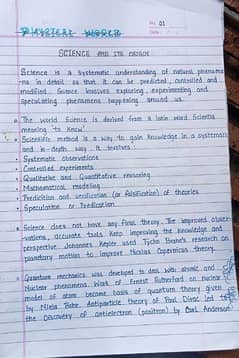 No. 01
Date:
PHYSICAL WORLD
SCIENCE AND ITS ORIGIN
Science is a systematic understanding of natural phenome
-na in detail so that it can be predicted, controlled and
modified. Science involves exploring, experimenting and
speculating phenomena happening around us.
The word Science is derived from a latin word Scientia
meaning 'to know'.
Scientific method is a way to gain knowledge in a systematic
and in-depth way. It involves:
• Systematic observations
• Controlled experiments
• Qualitative and Quantitative reasoning
• Mathematical modeling
• Prediction and verification (or falsification) of theories
• Speculation or Prediction
Science does not have any final theory. The improved obser-
vations, accurate tools keep improving the knowledge and
perspective. Johannes Kepler used Tycho Brahe's research on
planetary motion to improve Nicolas Copernicus theory.
Quantum mechanics was developed to deal with atomic and
Nuclear phenomena. Work of Ernest Rutherford on nuclear
model of atom became basis of quantum theory given
by Niels Bohr. Antiparticle theory of Paul Dirac led to
the discovery of antielectron (positron) by Carl Anderson.